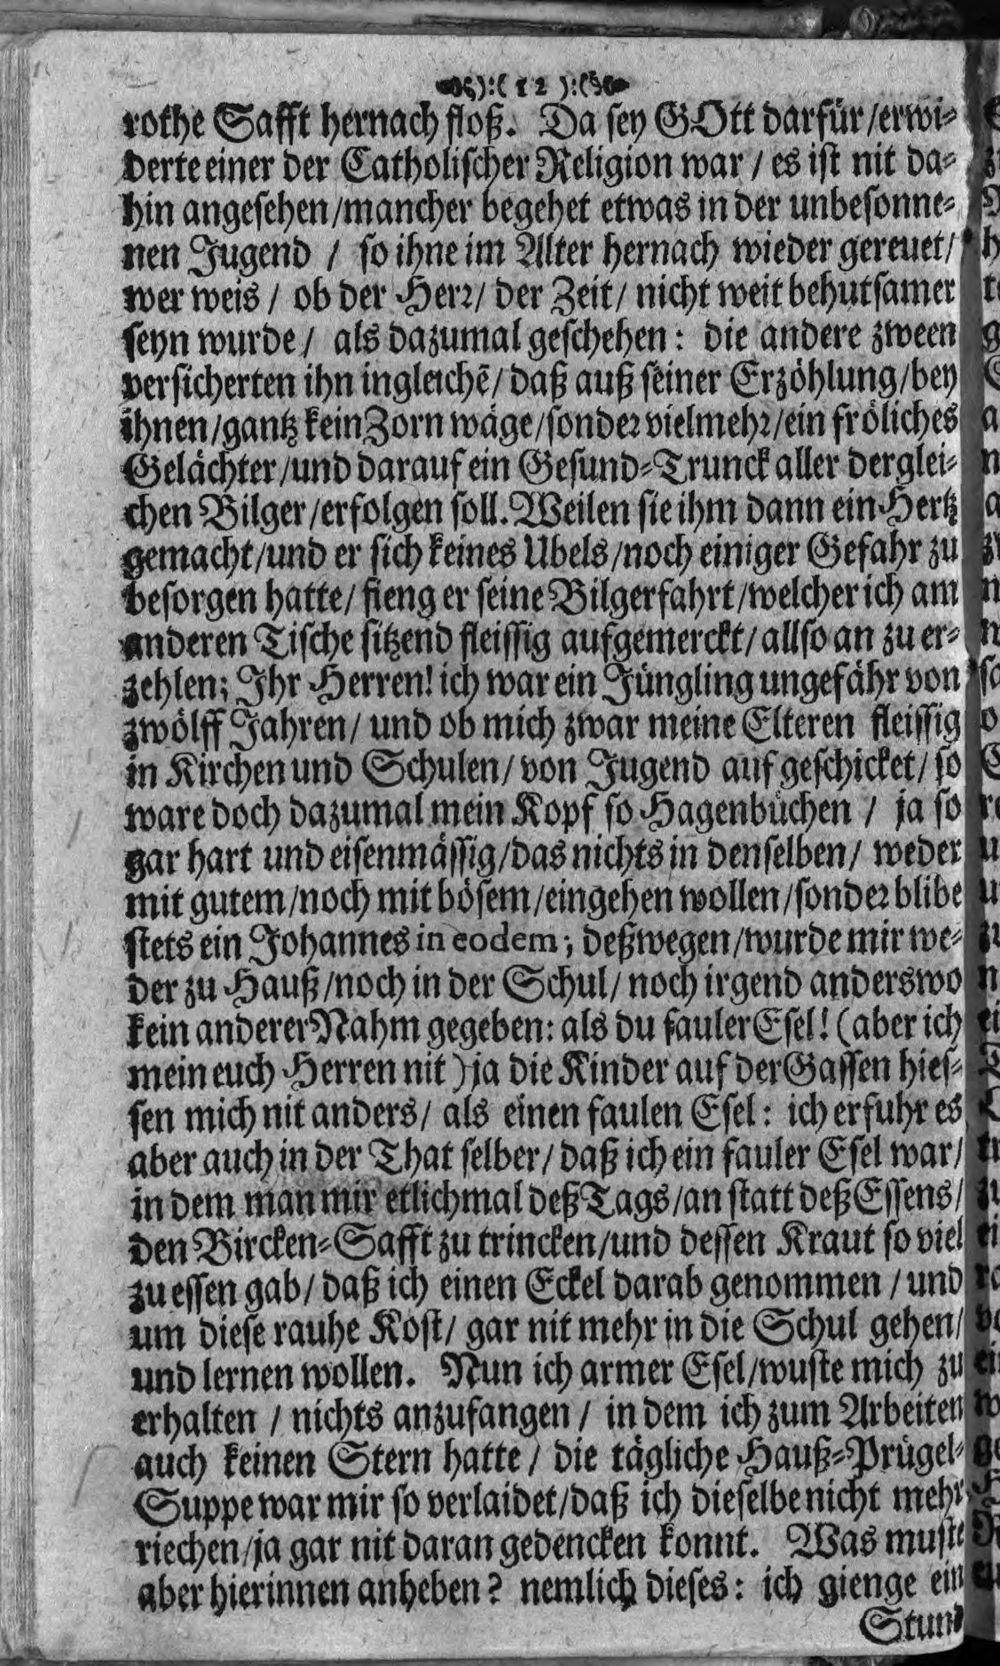 ):( 12 ):(
rothe Safft hernach floß. Da sey GOtt darfür / erwi-
derte einer der Catholischer Religion war / es ist nit da-
hin angesehen / mancher begehet etwas in der unbesonne-
nen Jugend / so ihne im Alter hernach wieder gereuet /
wer weis / ob der Herr / der Zeit / nicht weit behutsamer
seyn wurde / als dazumal geschehen: die andere zween
versicherten ihn ingleichē / daß auß seiner Erzöhlung / bey
ihnen / gantz kein Zorn wäge / sonder vielmehr / ein fröliches
Gelächter / und darauf ein Gesund-Trunck aller derglei-
chen Bilger / erfolgen soll. Weilen sie ihm dann ein Hertz
gemacht / und er sich keines Ubels / noch einiger Gefahr zu
besorgen hatte / fieng er seine Bilgerfahrt / welcher ich am
anderen Tische sitzend fleissig aufgemerckt / allso an zu er-
zehlen; Ihr Herren! ich war ein Jüngling ungefähr von
zwölff Jahren / und ob mich zwar meine Elteren fleissig
in Kirchen und Schulen / von Jugend auf geschicket / so
ware doch dazumal mein Kopf so Hagenbüchen / ja so
gar hart und eisenmässig / das nichts in denselben / weder
mit gutem / noch mit bösem / eingehen wollen / sonder blibe
stets ein Johannes in eodem; deßwegen / wurde mir we-
der zu Hauß / noch in der Schul / noch irgend anderswo
kein anderer Nahm gegeben: als du fauler Esel! (aber ich
mein euch Herren nit) ja die Kinder auf der Gassen hies-
sen mich nit anders / als einen faulen Esel: ich erfuhr es
aber auch in der That selber / daß ich ein fauler Esel war /
in dem man mir etlichmal deß Tags / an statt deß Essens /
den Bircken-Safft zu trincken / und dessen Kraut so viel
zu essen gab / daß ich einen Eckel darab genommen / und
um diese rauhe Kost / gar nit mehr in die Schul gehen /
und lernen wollen. Nun ich armer Esel / wuste mich zu
erhalten / nichts anzufangen / in dem ich zum Arbeiten
auch keinen Stern hatte / die tägliche Hauß-Prügel-
Suppe war mir so verlaidet / daß ich dieselbe nicht mehr
riechen / ja gar nit daran gedencken konnt. Was muste
aber hierinnen anheben? nemlich dieses: ich gienge ein
Stund